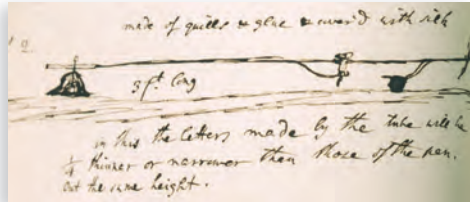 made of quills & glue & cover'd with silk
3 ft. long
in this the letters made by the tube will be
thinner or narrower than those of the pen.
but the same height.